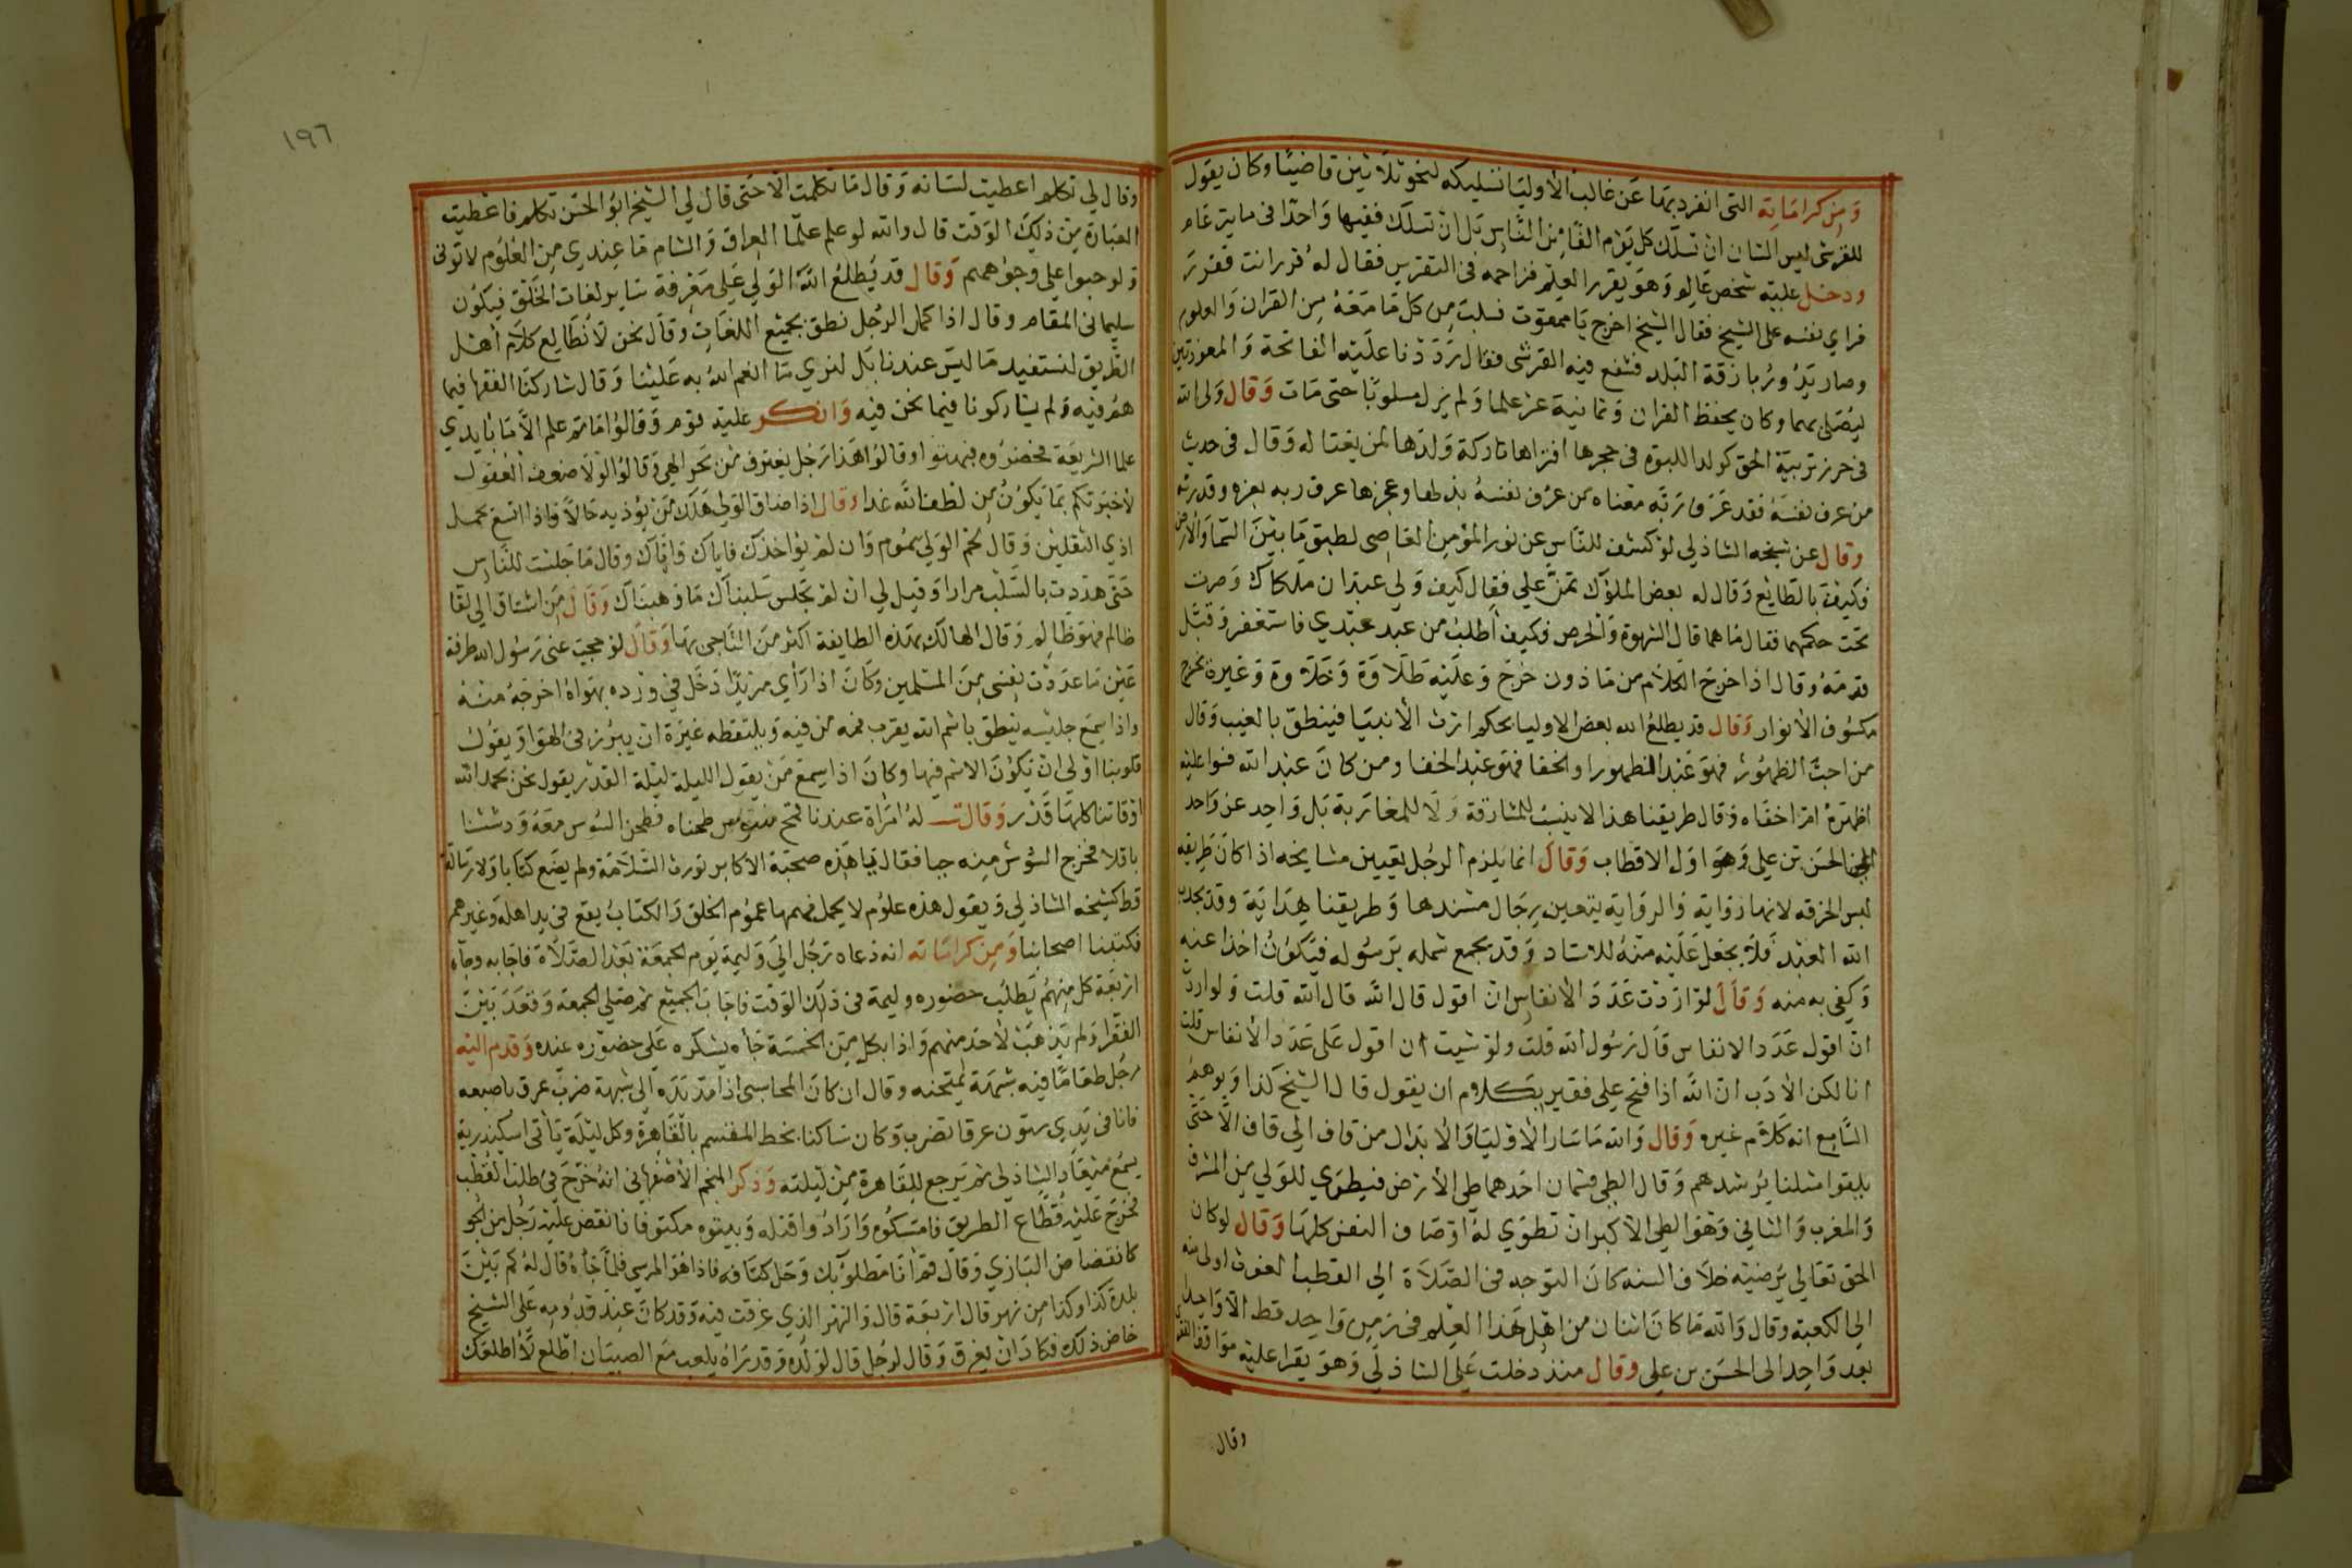 ومن كراماته التى انفرد بها عن غالب الأوليا تسليكه لنحو ثلاثين قاضيًا وكان يقول
للقرشى ليس الشان ان تسلك كل يوم الفًا من الناس بل ان تسلك فقيها واحدًا فى ماية عام
ودخل عليه شخص عالم وهو يقرر العلم فزاحمه فى التقرير فقال له قرر انت فقرر
فراي نفسه على الشيخ فقال الشيخ اخرج يا ممقوت فسلبت من كل ما معه من القران والعلوم
وصار يدور بازقة البلد فشفع فيه القرشى فقال رددنا عليه الفاتحة والمعوذتين
ليصلى بهما وكان يحفظ القران وثمانية عشر علما ولم يزل مسلوبًا حتى مات وقال ولى الله
فى حرز تربية الحق كولد اللبوه فى حجرها افتراها تاركة ولدها لمن يغتاله وقال فى حديث
من عرف نفسه فقد عرف ربه معناه من عرف نفسه بذلها وعجزها عرف ربه بعزه وقدرته
وقال عن شيخه الشاذلي لو كشف للناس عن نور المؤمن العاصى لطبق ما بين السما والأرض
فكيف بالطايع وقال له بعض الملوك تمن علي فقال كيف ولي عبدان ملكاك وصرت
تحت حكمهما فقال ما هما قال الشهوة والحرص فكيف أطلب من عبد عبدي فاستغفر وقبل
قدمه وقال اذا خرج الكلام من ماذون خرج وعليه طلاوة وحلاوة وغيره يخرج
مكسوف الأنوار وقال قد يطلع الله بعض الاوليا بحكم ارث الأنبيا فينطق بالغيب وقال
من احب الظهور فهو عبد الظهور او الخفا فهو عبد الخفا ومن كان عبد الله فسوا عليه
اظهره ام اخفاه وقال طريقنا هذا لا ينسب للمشارقة ولا للمغاربة بل واحد عن واحد
الى الحسن بن علي وهو اول الاقطاب وقال انما يلزم الرجل تعيين مشايخه اذا كان طريقه
لبس الخرقه لانها رواية والرواية يتعين رجال سندها وطريقنا هداية وقد يجذب
الله العبد فلا يجعل عليه منه للاستاد وقد يجمع شمله برسوله فيكون اخذا عنه
وكفى به منه وقال لو اردت عدد الأنفاس ان اقول قال الله قال الله قلت ولو اردت
ان اقول عدد الانفاس قال رسول الله قلت ولو شيت ان اقول على عدد الأنفاس قلت
انا لكن الأدب ان الله اذا فتح علي فقير بكلام ان يقول قال الشيخ كذا ويوهم
السامع انه كلام غيره وقال والله ما سار الأوليا والأبدال من قاف الي قاف الا حتى
يلقوا مثلنا يرشدهم وقال الطى قسمان احدهما طى الأرض فيطوي للولي من المشرق
والمغرب والثاني وهو الطى الأكبر ان تطوي له اوصاف النفس كلها وقال لو كان
الحق تعالي يرضيه خلاف السنه كان التوجه فى الصلاة الي القطب الغوث اولى منه
الي الكعبة وقال والله ما كان اثنان من اهل هذا العلم فى زمن واحد قط الا واحد
بعد واحد الى الحسن بن على وقال منذ دخلت علي الشاذلي وهو يقرا عليه مواقف
وقال
١٩٦
وقال لي تكلم اعطيت لسانه وقال ما تكلمت الا حتى قال لي الشيخ ابو الحسن تكلم فاعطيت
العبارة من ذلك الوقت قال والله لو علم علما العراق والشام ما عندي من العلوم لاتونى
ولو حبوا على وجوههم وقال قد يطلع الله الولي علي معرفة ساير لغات الخلق فيكون
سليمانى المقام وقال اذا كمل الرجل نطق بجميع اللغات وقال نحن لا نطالع كلام اهل
الطريق لنستفيد ما ليس عندنا بل لنري ما انعم الله به علينا وقال شاركنا الفقها فيما
هم فيه ولم يشاركونا فيما نحن فيه وانكر عليه قوم وقالوا ما ثم علم الا ما بايدي
علما الشريعة فحضروه فبهتوا وقالوا هذا رجل يغترف من بحر الهي وقالوا لولا ضعف العقول
لأخبرتكم بما يكون من لطف الله غدا وقال اذا ضاق الولي هلك من يؤذيه حالا واذا اتسع تحمل
اذي الثقلين وقال لحم الولي مسموم وان لم يواخذك فاياك فاياك وقال ما جلست للناس
حتى هددت بالسلب مرارا وقيل لي ان لم تجلس سلبناك ما وهبناك وقال من اشتاق الي لقا
ظالم فهو ظالم وقال الهالك بهذه الطايفة اكثر من الناجى بها وقال لو حجبت عنى رسول الله طرفة
عين ما عددت نفسى من المسلمين وكان اذا رأي مريدًا دخل في ورده بهواه اخرجه منه
واذا سمع جليسه ينطق باسم الله يقرب فمه من فيه ويلتقطه غيرة ان يبرز فى الهوا ويقول
قلوبنا اولي ان يكون الاسم فيها وكان اذا سمع من يقول الليلة ليلة القدر يقول نحن بحمد الله
اوقاتنا كلها قدر وقالت له امراة عندنا قمح مسوس طحناه فطحن السوس معه ودششنا
باقلا فخرج السوس منه حيا فقال لها هذه صحبة الاكابر تورث السلامة ولم يضع كتابا ولا رسالة
قط كشيخه الشاذلي ويقول هذه علوم لا يحمل فهمها عموم الخلق والكتاب يقع في يد اهله وغيرهم
فكتبنا اصحابنا ومن كراماته انه دعاه رجل الي وليمة يوم الجمعة بعد الصلاة فاجابه وجاه
اربعة كل منهم يطلب حضوره وليمة فى ذلك الوقت فاجاب الجميع ثم صلي الجمعة وقعد بين
الفقرا ولم يذهب لأحد منهم واذا بكل من الخمسة جاه يشكره على حضوره عنده وقدم اليه
رجل طعامًا فيه شبهة يمتحنه وقال ان كان المحاسبى اذا مد يده الى شبهة ضرب عرق باصبعه
فانا فى يدي ستون عرقا تضرب وكان ساكنا بخط المقسم بالقاهرة وكل ليلة ياتى اسكندرية
يسمع ميعاد الشاذلى ثم يرجع للقاهرة من ليلته وذكر النجم الأصفهانى انه خرج في طلب القطب
فخرج عليه قطاع الطريق فامسكوه وارادوا قتله وبيتوه مكتوفا فانقض عليه رجل من الجو
كانقضاض البازي وقال قم انا مطلوبك وحل كتافه فاذا هو المرسى فلما جاه قال له كم بين
بلدة كذا وكذا من نهر قال اربعة قال والنهر الذي غرقت فيه وقد كان عند قدومه على الشيخ
خاض ذلك فكاد ان يغرق وقال لرجل قال لولده وقد راه يلعب مع الصبيان اطلع لا اطلعك